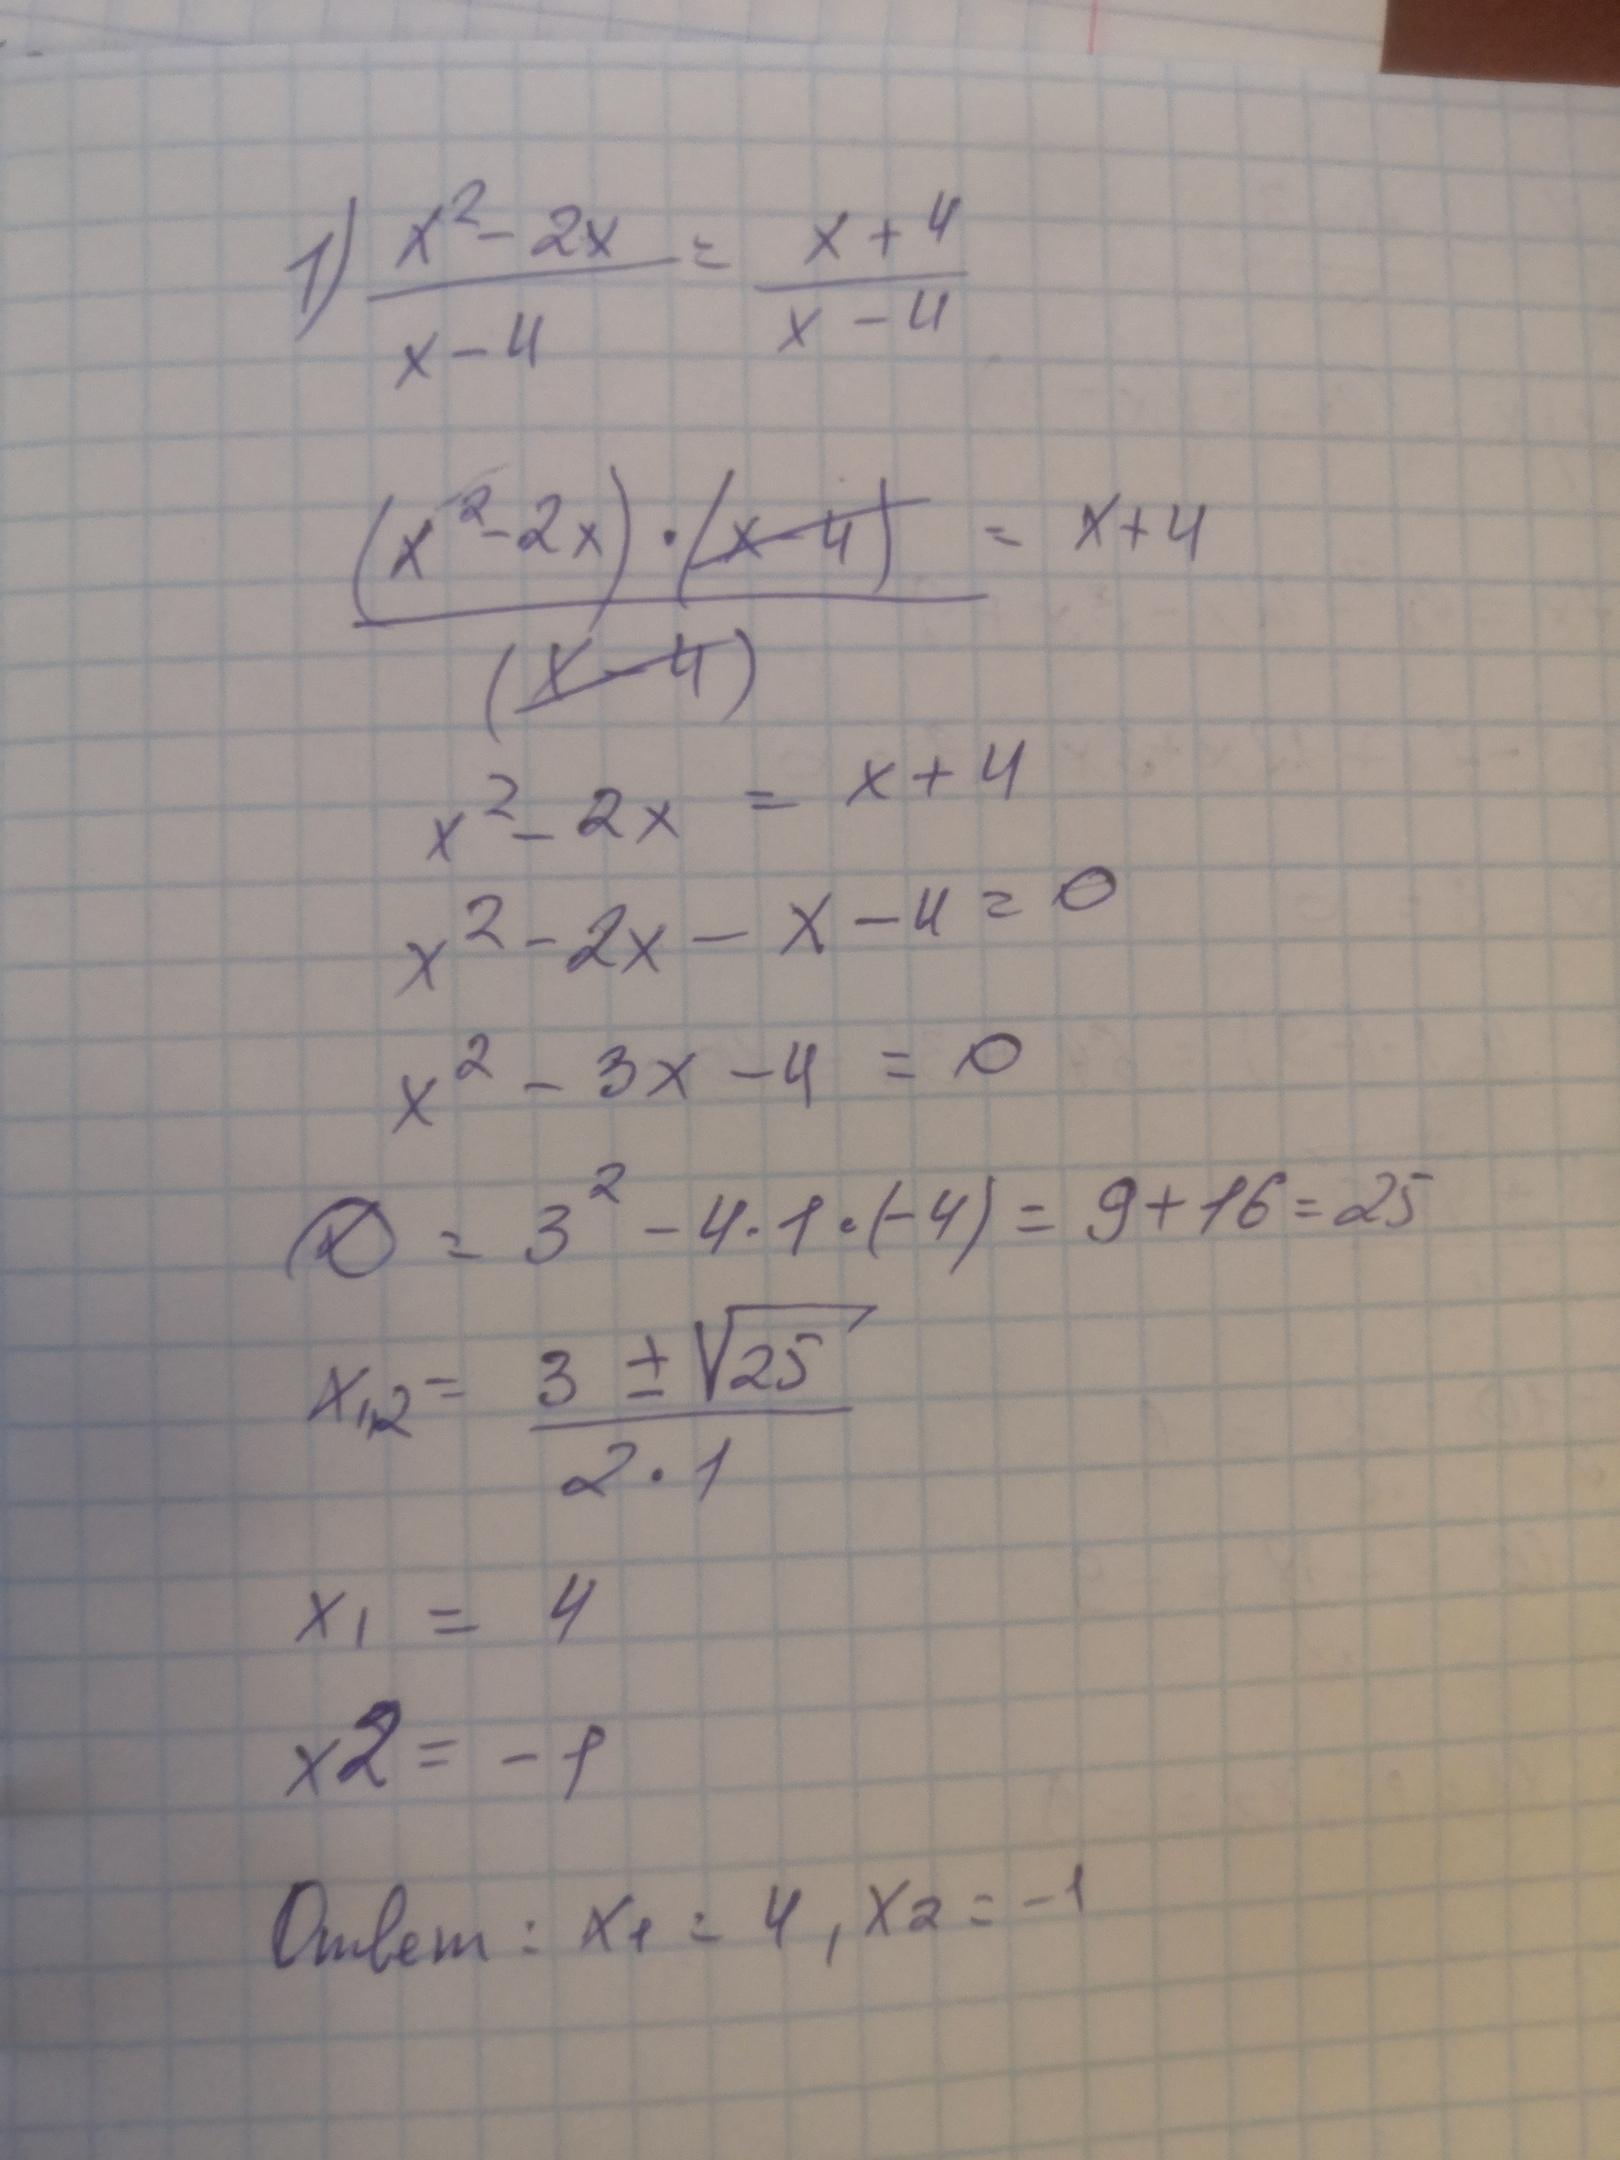 1) (x² - 2x)/(x - 4) = (x + 4)/(x - 4)
((x² - 2x) · (x - 4))/(x - 4) = x + 4
x² - 2x = x + 4
x² - 2x - x - 4 = 0
x² - 3x - 4 = 0
D = 3² - 4 · 1 · (-4) = 9 + 16 = 25
x₁,₂ = (3 ± √25)/(2 · 1)
x₁ = 4
x2 = -1
Ответ: x₁ = 4, x₂ = -1